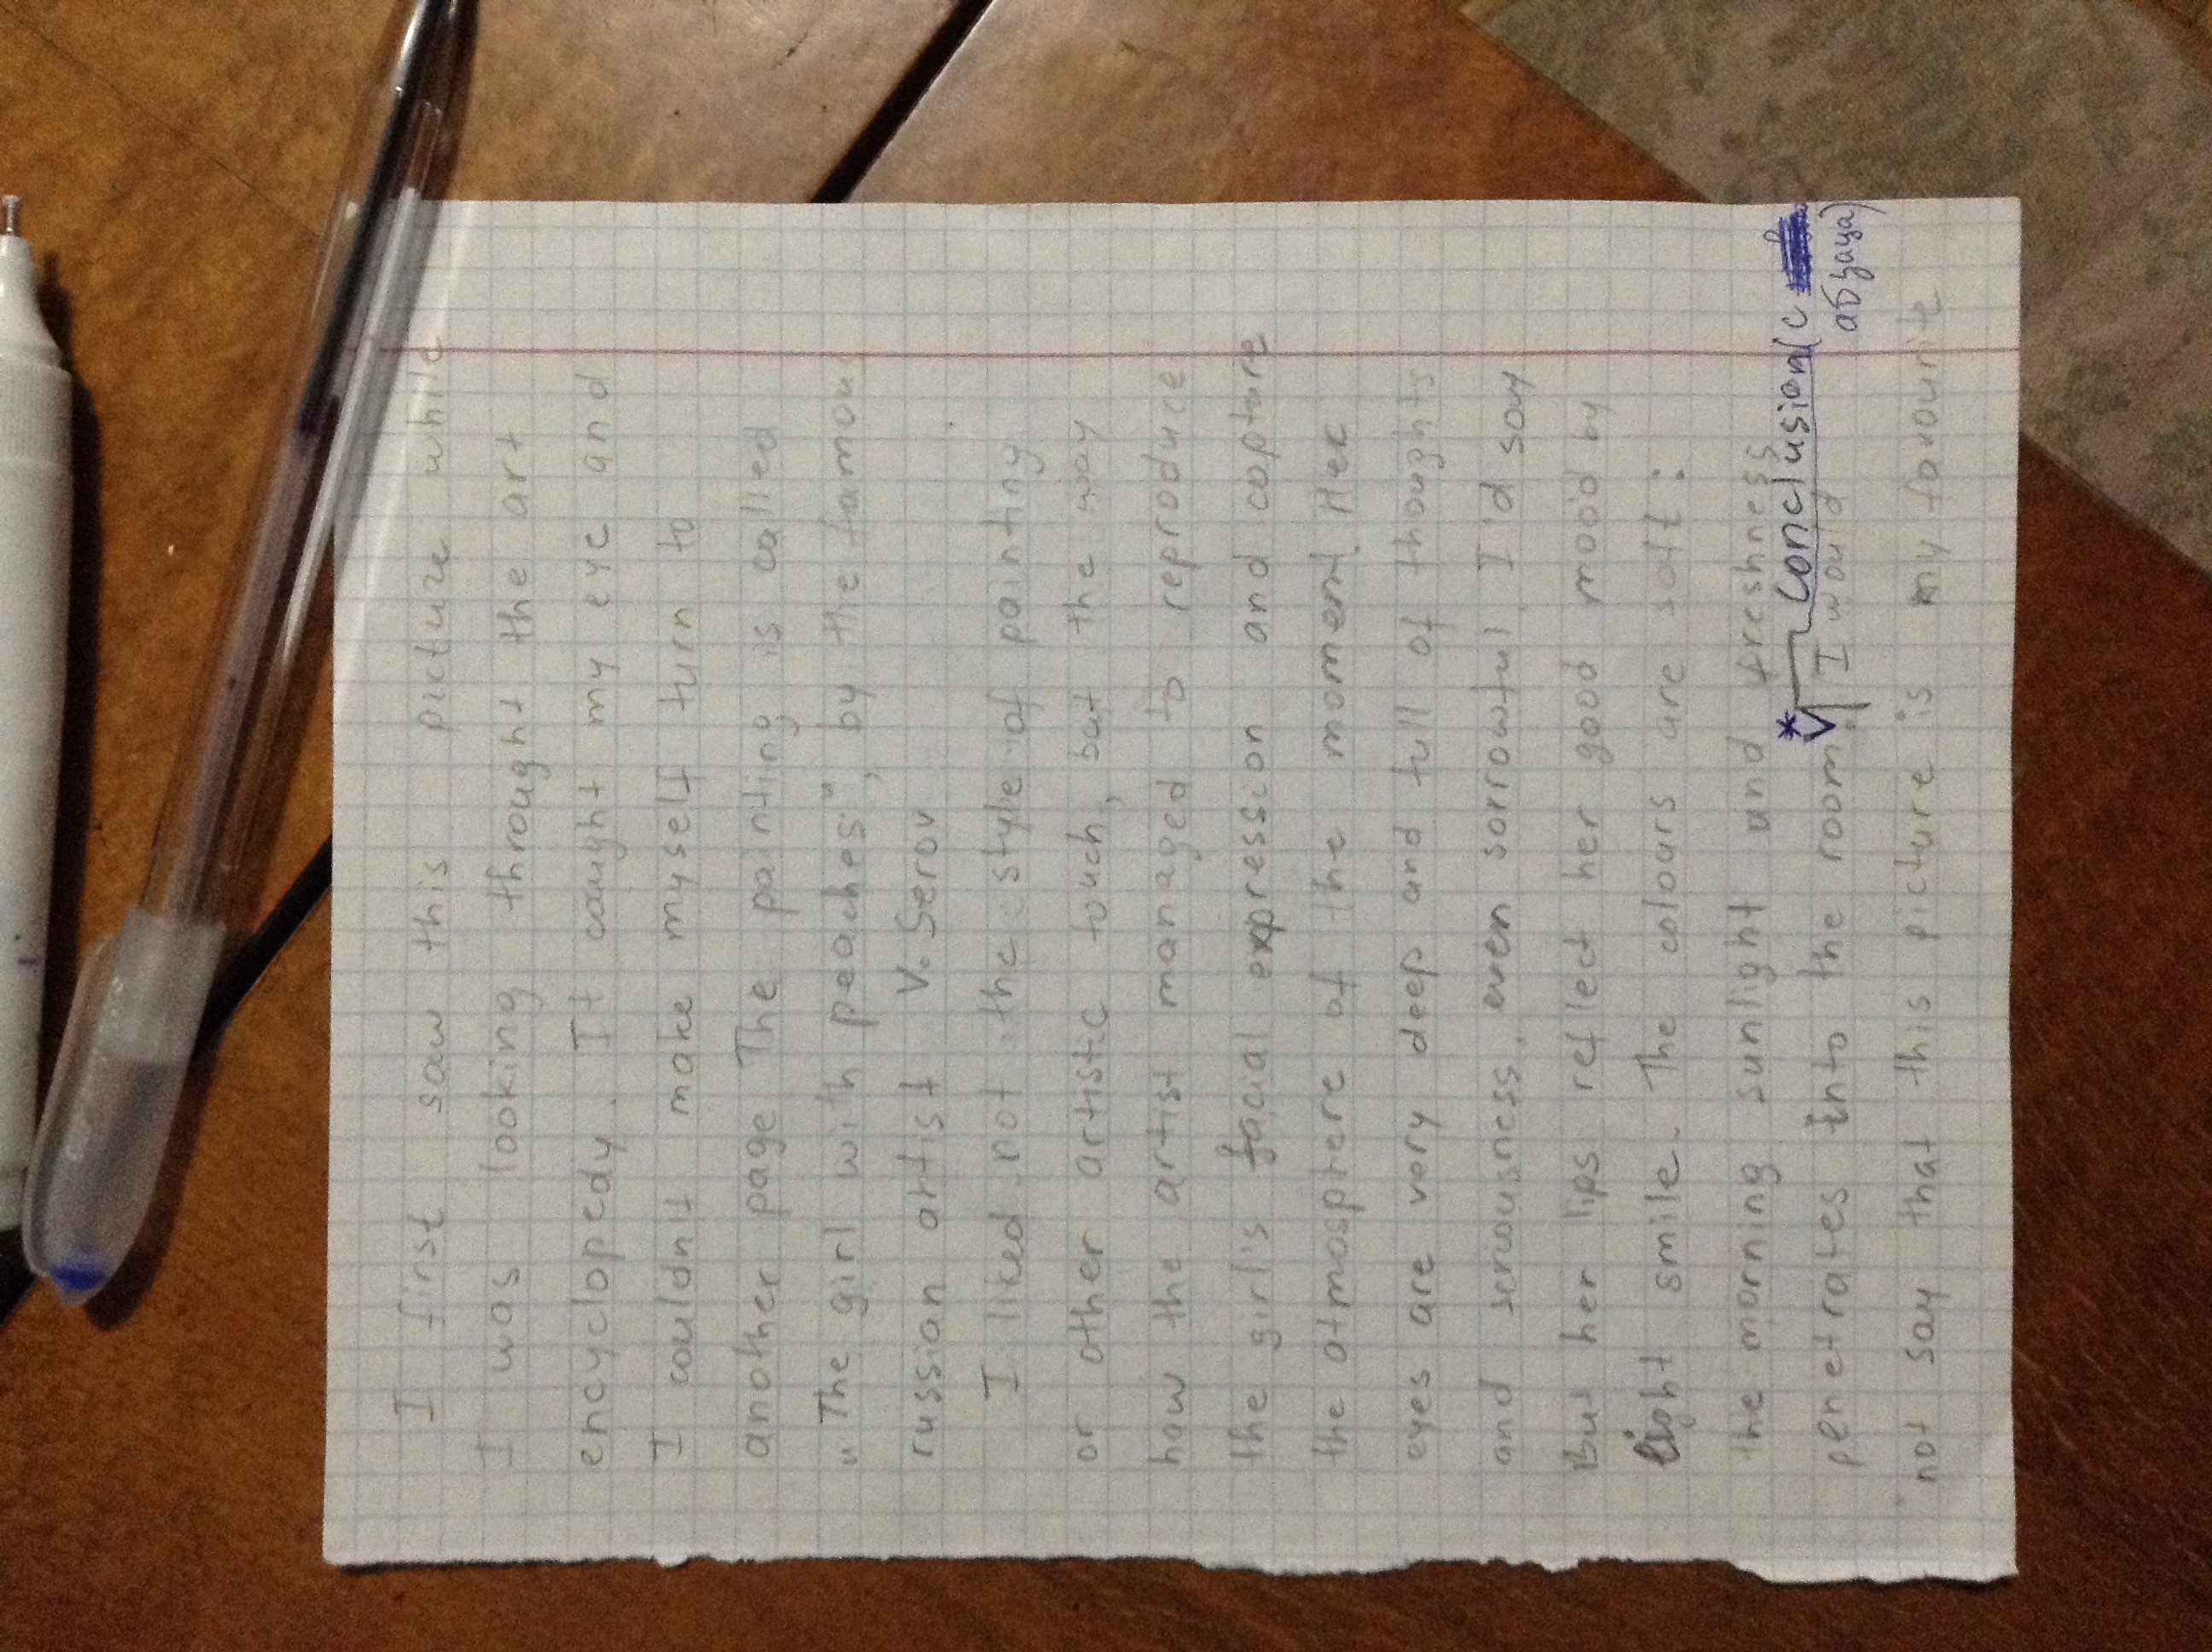 I first saw this picture while
I was looking throught the art
encyclopedy. It caught my eye and
I couldn't make myself turn to
another page The painting is called
"The girl with peaches", by the famous
russian artist V. Serov.
I liked not the style of painting
or other artistic touch, but the way
how the artist managed to reproduce
the girl's facial expression and capture
the atmosphere of the moment. Her
eyes are very deep and full of thoughts
and seriousness, even sorrowful, I'd say
But her lips reflect her good mood by
light smile. The colours are soft:
the morning sunlight and freshness
* Conclusion (с
абзаца)
penetrates into the room. I would
not say that this picture is my favourite